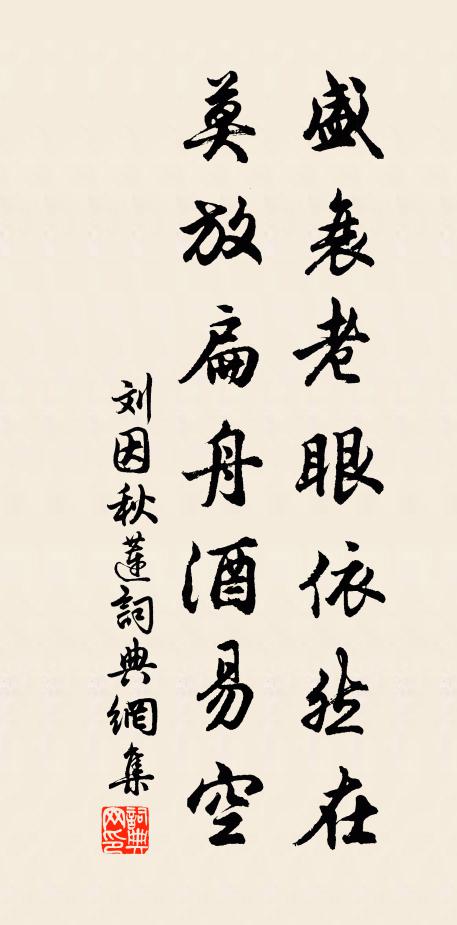 盛衰老眼依然在
莫放扁舟酒易空
刘因秋莲詞典網集
詞典网印